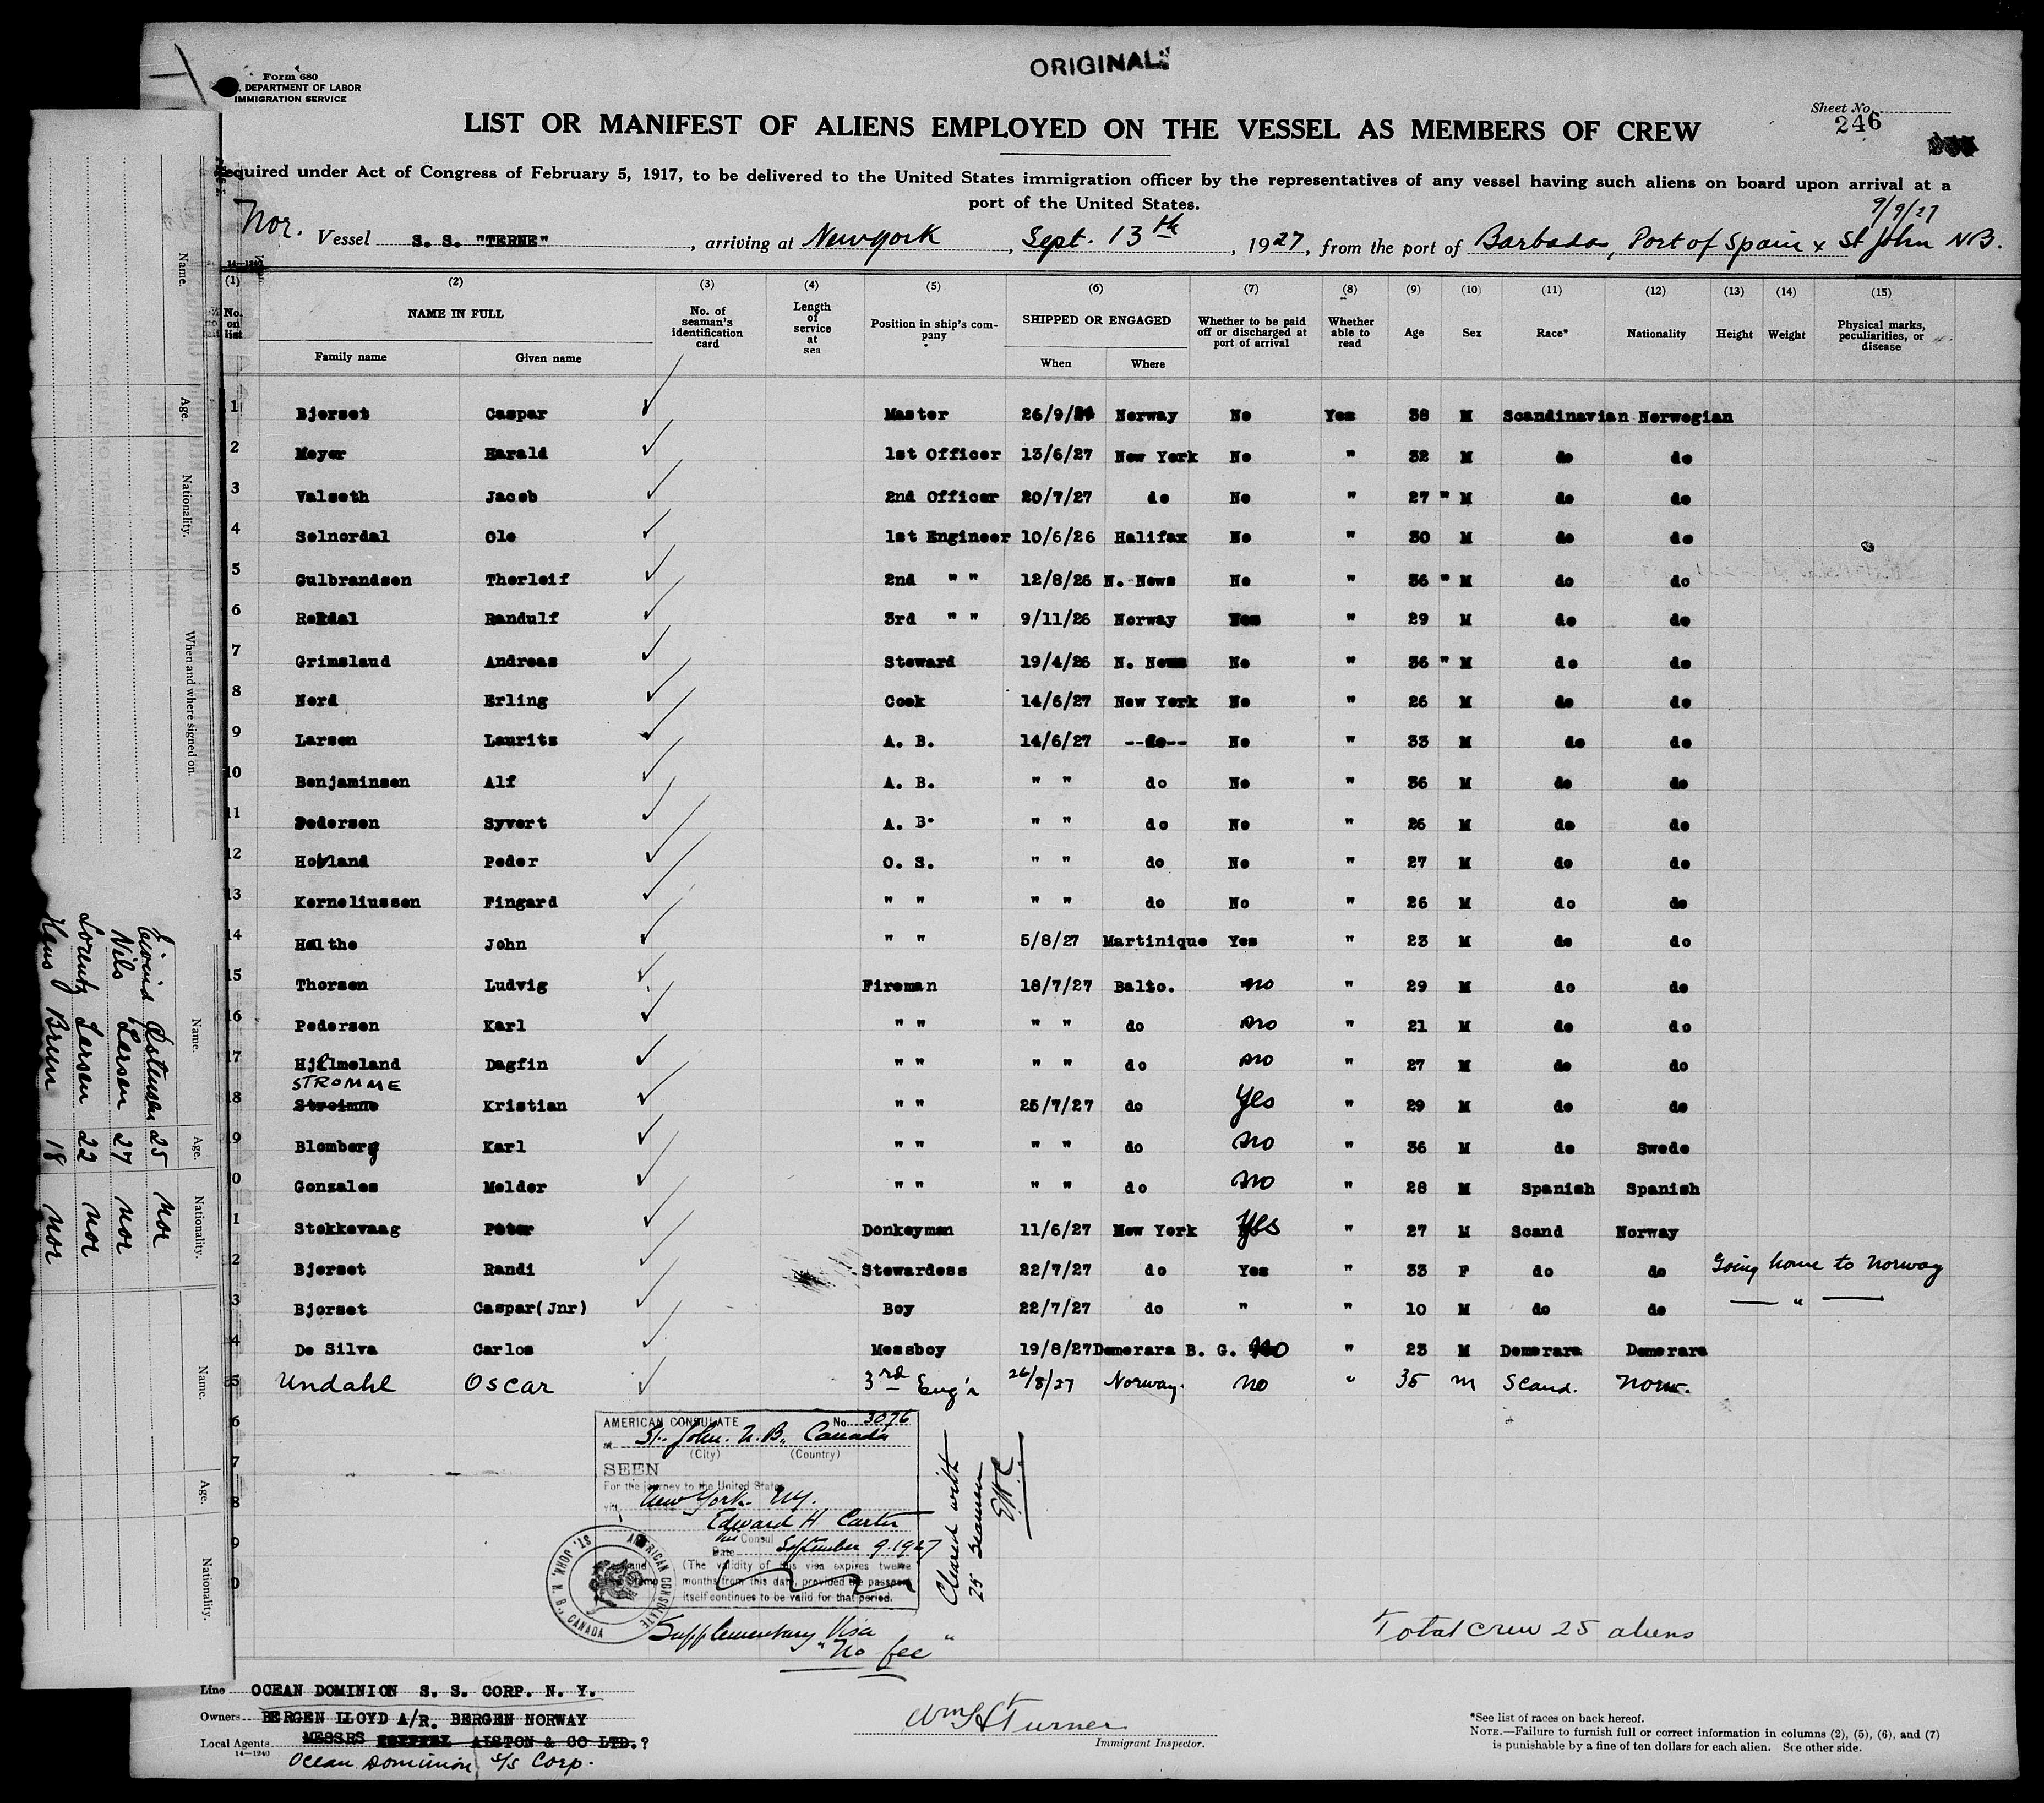 ORIGINAL
Form 680
DEPARTMENT OF LABOR
IMMIGRATION SERVICE
Sheet No.
246
LIST OR MANIFEST OF ALIENS EMPLOYED ON THE VESSEL AS MEMBERS OF CREW
equired under Act of Congress of February 5, 1917, to be delivered to the United States immigration officer by the representatives of any vessel having such aliens on board upon arrival at a
port of the United States.
9/9/27
Nor. Vessel S. S. "TERNE", arriving at New York, Sept. 13th, 1927, from the port of Barbados, Port of Spain & St John NB.
(1) (2) (3) (4) (5) (6) (7) (8) (9) (10) (11) (12) (13) (14) (15)
No. on list NAME IN FULL Family name Given name No. of seaman's identification card Length of service at sea Position in ship's company SHIPPED OR ENGAGED When Where Whether to be paid off or discharged at port of arrival Whether able to read Age Sex Race* Nationality Height Weight Physical marks, peculiarities, or disease
1 Bjorset Caspar Master 26/9/ Norway No Yes 38 M Scandinavian Norwegian
2 Meyer Harald 1st Officer 13/6/27 New York No " 32 M do do
3 Valseth Jacob 2nd Officer 20/7/27 do No " 27 " M do do
4 Selnordal Ole 1st Engineer 10/6/26 Halifax No " 30 M do do
5 Gulbrandsen Thorleif 2nd " " 12/8/26 N. News No " 36 " M do do
6 Randulf 3rd " " 9/11/26 Norway " 29 M do do
7 Grimslaud Andreas Steward 19/4/26 N. News No " 36 " M do do
8 Nord Erling Cook 14/6/27 New York No " 26 M do do
9 Larsen Lauritz A. B. 14/6/27 --do-- No " 33 M do do
10 Benjaminsen Alf A. B. " " do No " 36 M do do
11 Pedersen Syvert A. B. " " do No " 26 M do do
12 Hovland Peder O. S. " " do No " 27 M do do
13 Korneliussen Fingard " " " " do No " 26 M do do
14 Halthe John " " 5/8/27 Martinique Yes " 23 M do do
15 Thorsen Ludvig Fireman 18/7/27 Balto. no " 29 M do do
16 Pedersen Karl " " " " do no " 21 M do do
17 Hjelmeland Dagfin " " " " do no " 27 M do do
STROMME
18 Stroimne Kristian " " 25/7/27 do Yes " 29 M do do
9 Blomberg Karl " " " " do no " 36 M do Swede
0 Gonzales Melder " " " " do no " 28 M Spanish Spanish
1 Stokkevaag Peter Donkeyman 11/6/27 New York Yes " 27 M Scand Norway
2 Bjorset Randi Stewardess 22/7/27 do Yes " 33 F do do Going home to Norway
3 Bjorset Caspar(Jnr) Boy 22/7/27 do " " 10 M do do — " —
4 De Silva Carlos Messboy 19/8/27 Demerara B. G. No " 23 M Demerara Demerara
25 Undahl Oscar 3rd Eng'r 26/8/27 Norway. no " 35 m Scand. Norw.
6
7
8
9
0
AMERICAN CONSULATE No. 3076
at St. John. N.B. Canada
(City) (Country)
SEEN
For the journey to the United States
via New York. N.Y.
Edward H Carter
Vice Consul
Date September 9. 1927
(The validity of this visa expires twelve
months from this date, provided the passport
itself continues to be valid for that period.
AMERICAN CONSULATE ST. JOHN, N. B., CANADA
Supplementary Visa
"No fee"
Cleared with
25 seamen
Total crew 25 aliens
Line OCEAN DOMINION S. S. CORP. N. Y.
Owners BERGEN LLOYD A/R. BERGEN NORWAY
Local Agents MESSRS ALSTON & CO LTD.?
14—1240
Ocean Dominion S/S Corp.
Wm H Turner
Immigrant Inspector.
*See list of races on back hereof.
NOTE.—Failure to furnish full or correct information in columns (2), (5), (6), and (7)
is punishable by a fine of ten dollars for each alien. See other side.
Name. Age. Nationality. When and where signed on.
Name. Age. Nationality.
Name. Age. Nationality.
Eivind Ostensen 25 Nor
Nils Larsen 27 nor
Lorentz Larsen 22 nor
Hans Brun 18 nor